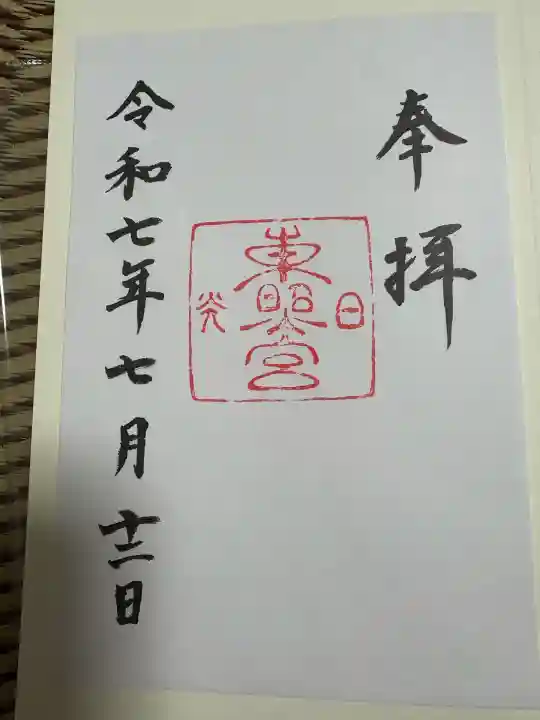 奉拝
日光
東照宮
令和七年七月十二日